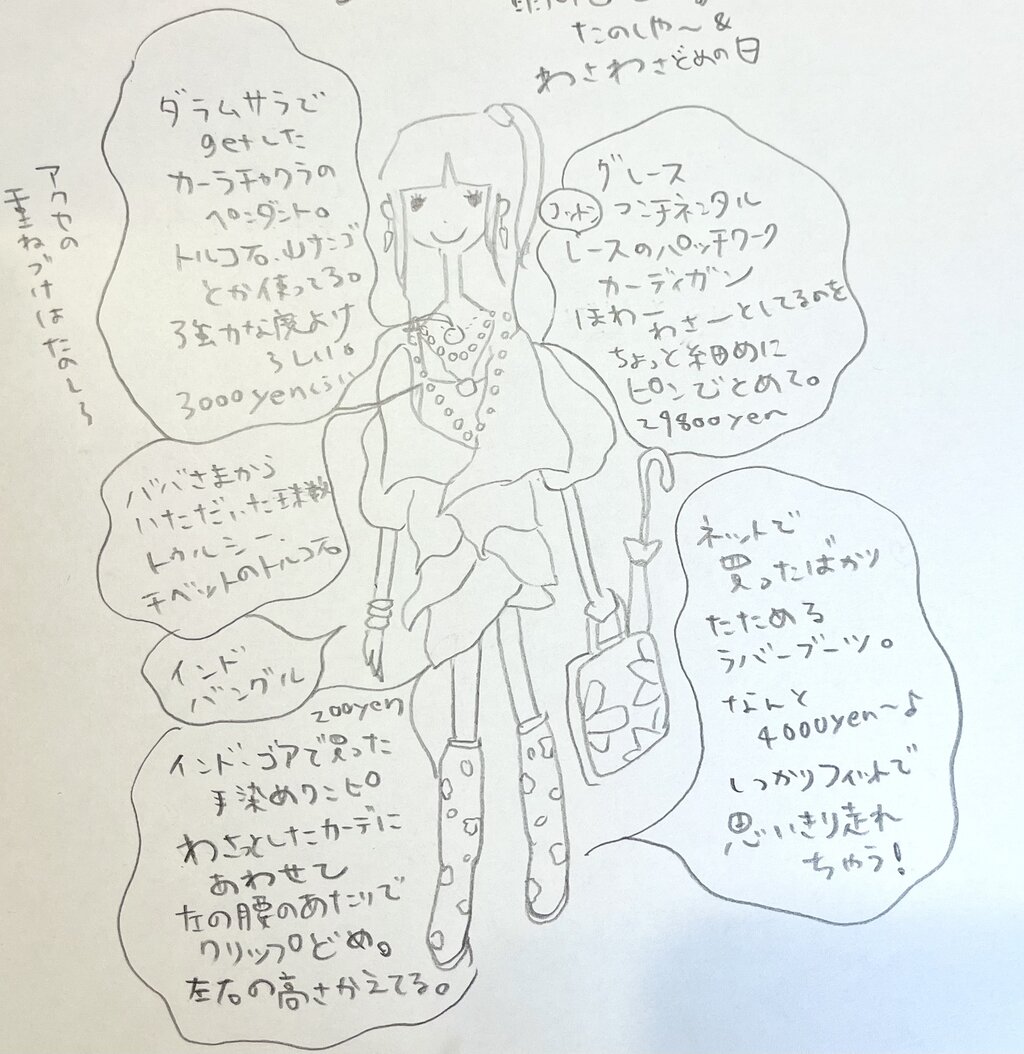 たのしや〜&
わさわさどめの日
ダラムサラで
getした
カーラチャクラの
ペンダント。
トルコ石、山サンゴ
とか使ってる。
強力な魔よけ
らしい。
3000yenくらい
アクセの
重ねづけはたのしろ
グレース
コットン
コンチネンタル
レースのパッチワーク
カーディガン
ほわー
わさーとしてるのを
ちょっと細めに
ピンでとめて。
29800yen
ババさまから
いただいた球数
トゥルシー、
チベットのトルコ石
インド
バングル
200yen
ネットで
買ったばかり
たためる
ラバーブーツ。
なんと
4000yen〜♪
しっかりフィットで
思いきり走れ
ちゃう!
インド・ゴアで買った
手染めワンピ
わさっとしたカーデに
あわせて
左の腰のあたりで
クリップどめ。
左右の高さかえてる。